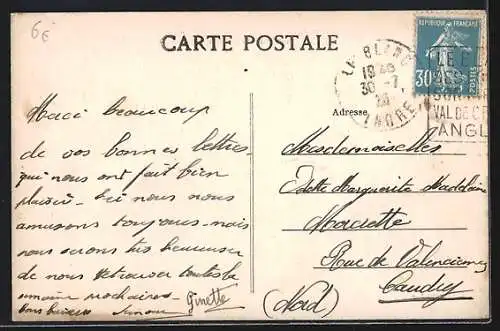 6€
CARTE POSTALE
REPUBLIQUE FRANCAISE
30
POSTES
LE BLANC
1940
30 -7
INDRE
VAL DE C
ANGL
Adresse
Merci beaucoup
de vos bonnes lettres
qui nous ont fait bien
plaisir. Ici nous nous
amusons toujours mais
nous serons très heureuses
de nous retrouver toutes la
semaine prochaine.
bons baisers Simone Ginette
Mesdemoiselles
Odette Marguerite Madeleine
Marette
Rue de Valenciennes
Caudry
(Nord)